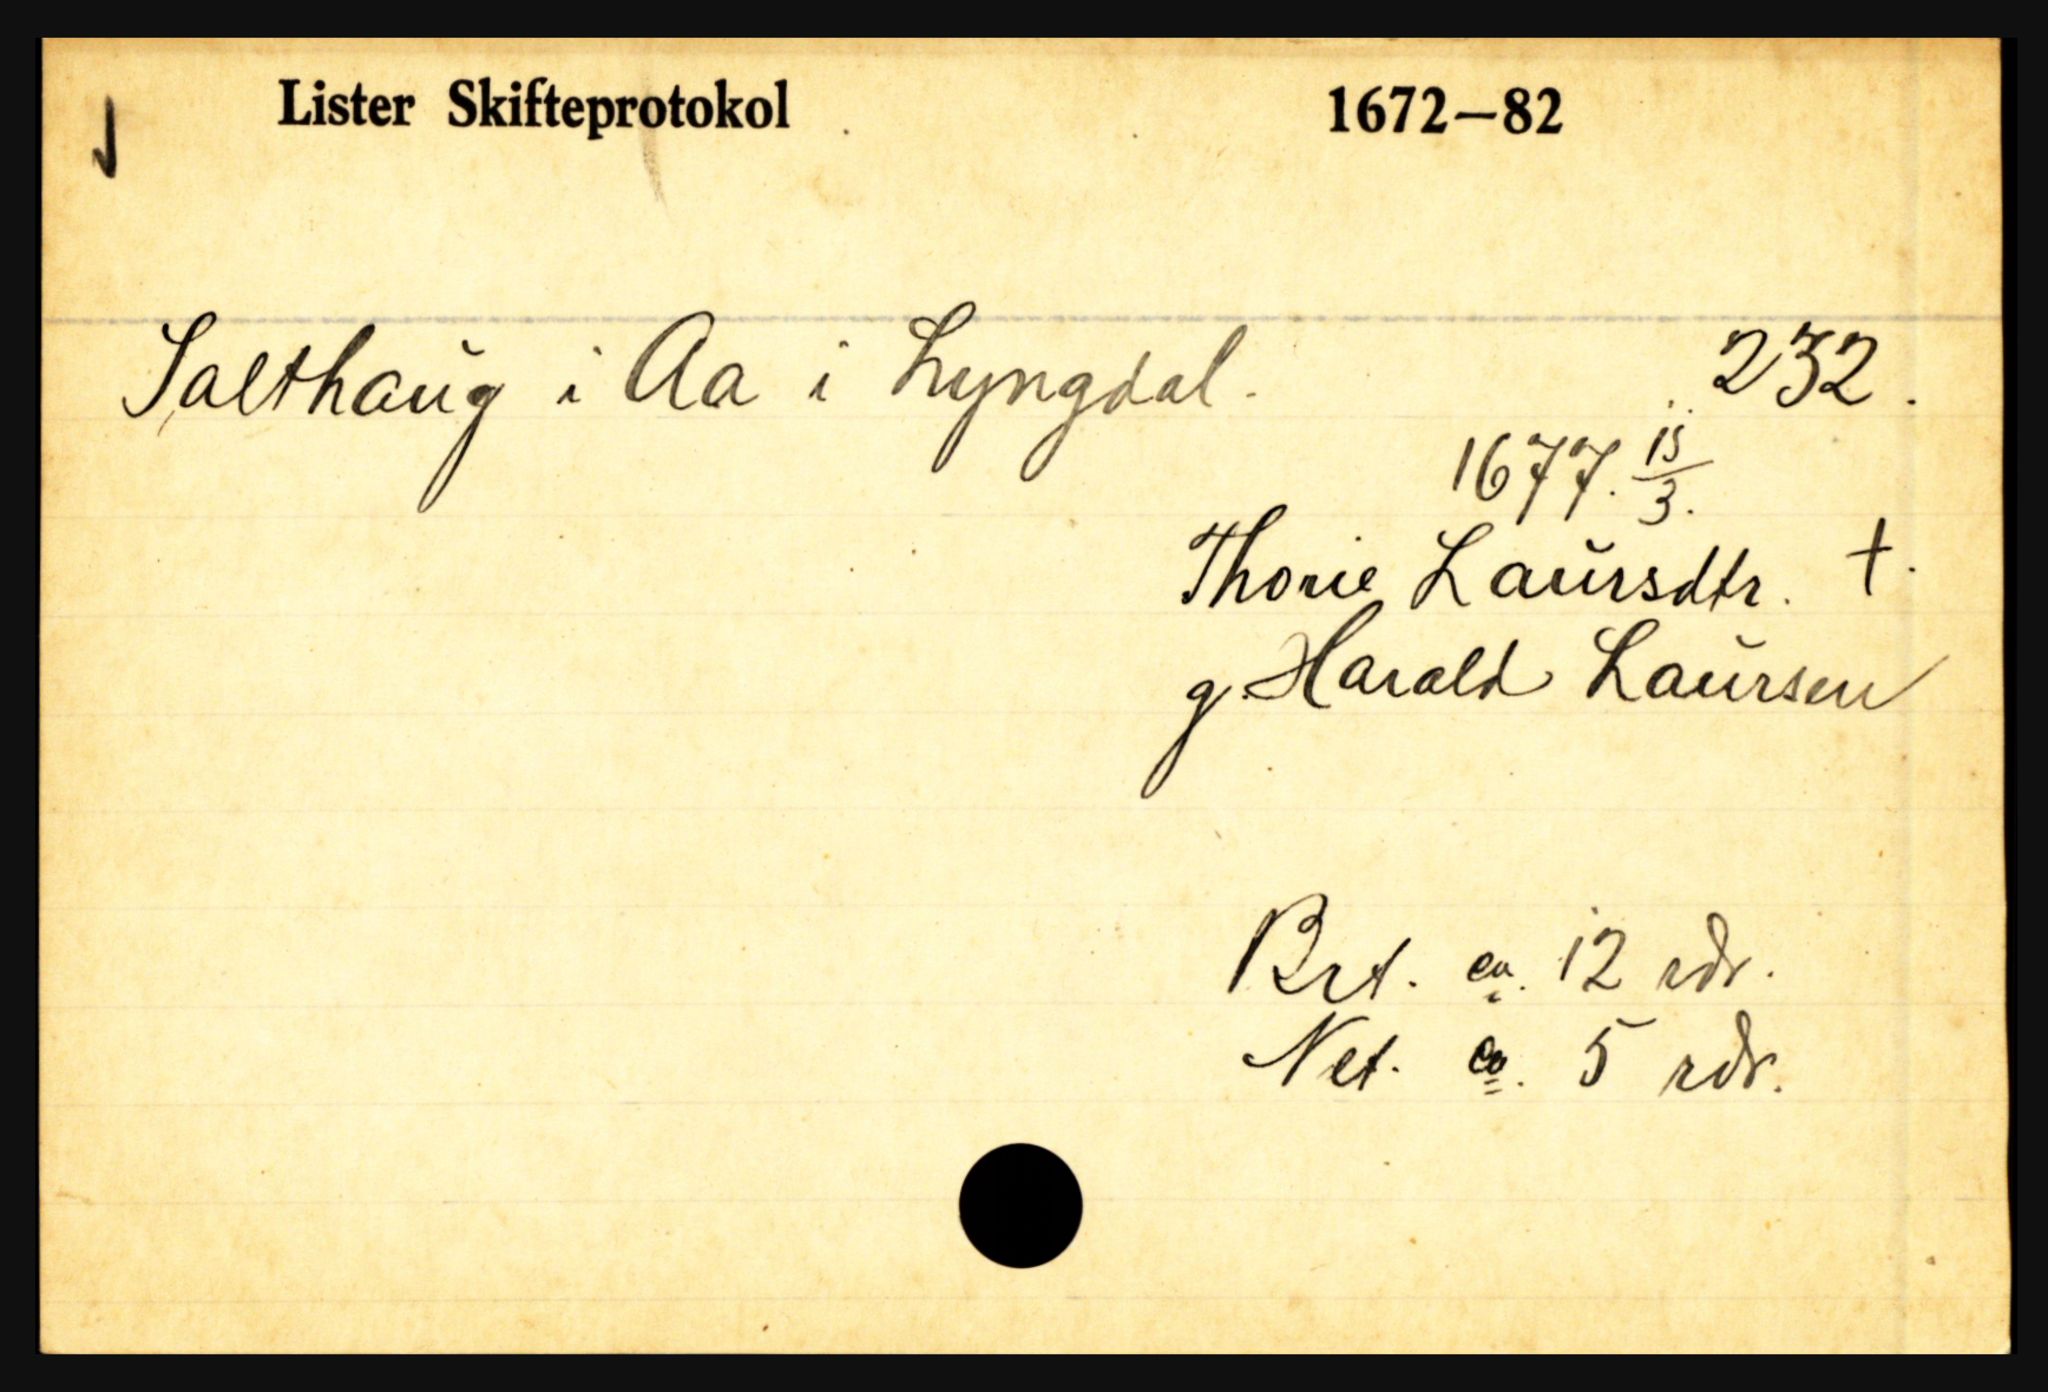 Lister Skifteprotokol 1672–82
Salthaug i Aa i Lyngdal. 232.
1677. 15/3.
Thorie Laursdtr. †.
g. Harald Laursen
Brt. ca. 12 rdr.
Net. ca. 5 rdr.